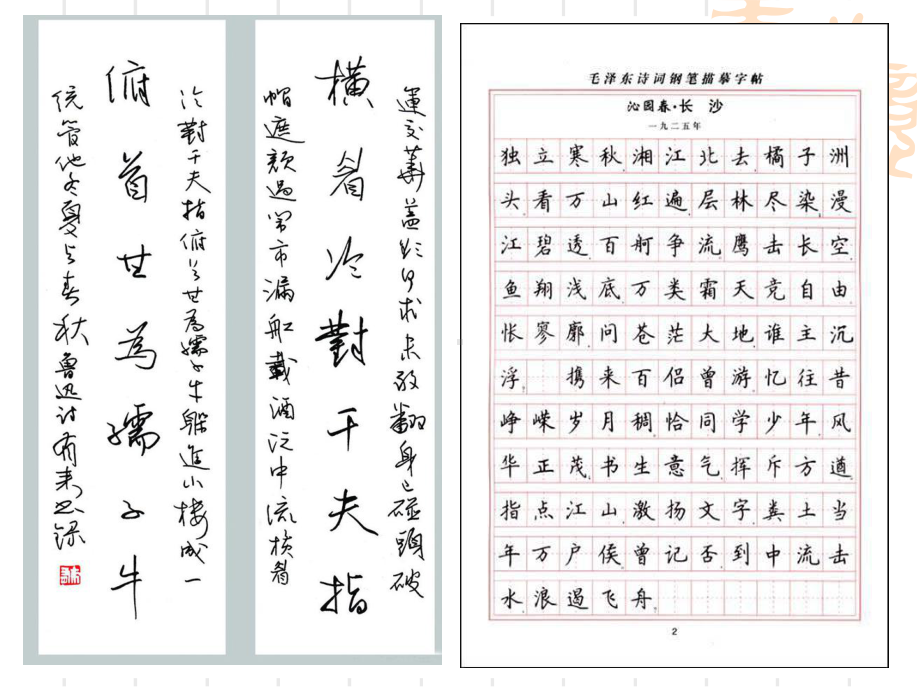 運交華蓋欲何求未敢翻身已碰頭破
横眉冷對千夫指
帽遮顔過鬧市漏舡載酒泛中流横眉
冷對千夫指俯首甘為孺子牛躲進小樓成一
俯首甘為孺子牛
統管他冬夏与春秋 鲁迅诗
毛泽东诗词钢笔描摹字帖
沁园春·长 沙
一九二五年
独立寒秋湘江北去橘子洲
头看万山红遍层林尽染漫
江碧透百舸争流鹰击长空
鱼翔浅底万类霜天竞自由
怅寥廓问苍茫大地谁主沉
浮 携来百侣曾游忆往昔
峥嵘岁月稠恰同学少年风
华正茂书生意气挥斥方遒
指点江山激扬文字粪土当
年万户侯曾记否到中流击
水浪遏飞舟
2